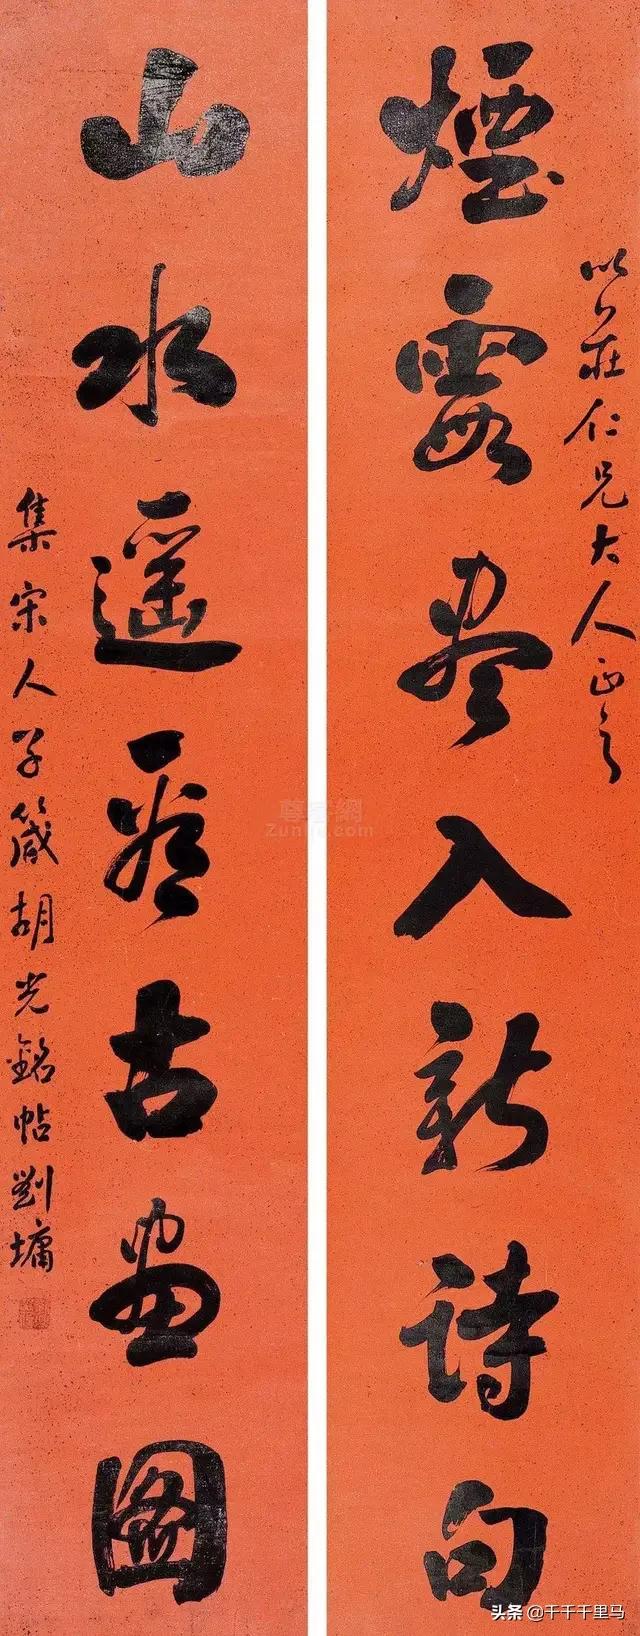 莊仁兄大人正之
煙霞盡入新詩句
山水遥看古畫圖
集宋人字箴胡光銘帖劉墉
尊客網
Zunke.com
头条 @千千千里马